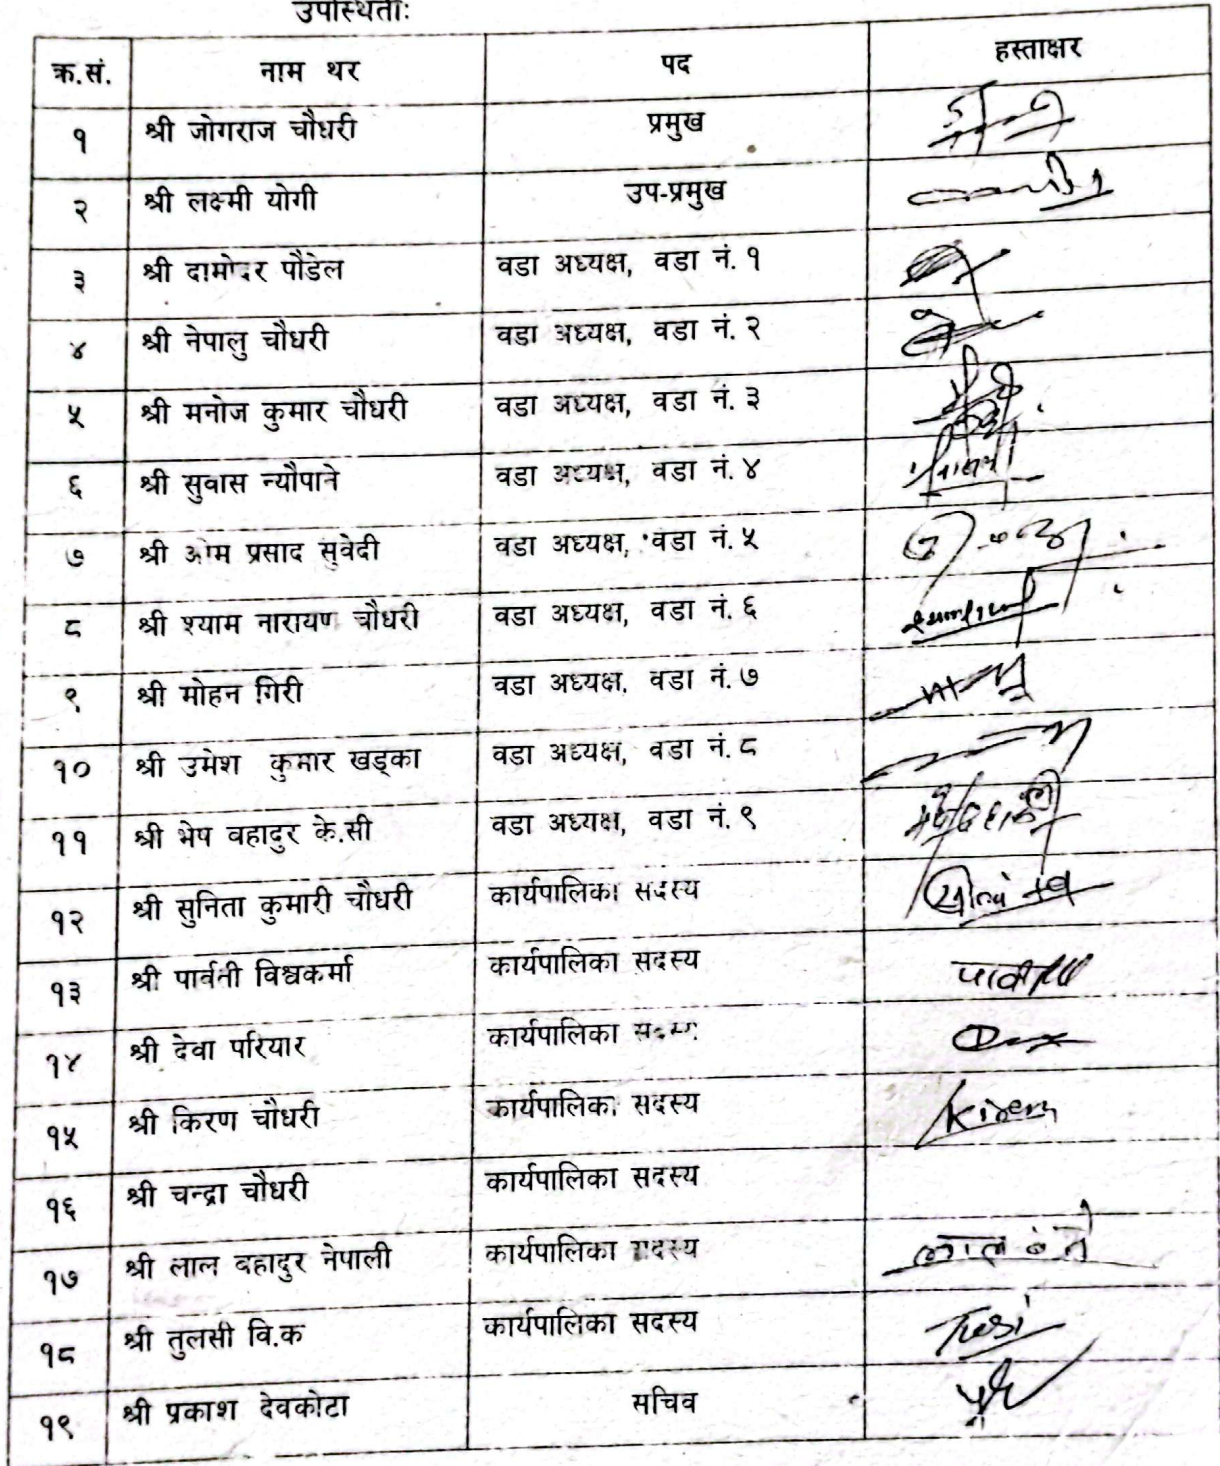 उपस्थिती:
क्र.सं. नाम थर पद हस्ताक्षर
१ श्री जोगराज चौधरी प्रमुख
२ श्री लक्ष्मी योगी उप-प्रमुख
३ श्री दामोदर पौडेल वडा अध्यक्ष, वडा नं. १
४ श्री नेपालु चौधरी वडा अध्यक्ष, वडा नं. २
५ श्री मनोज कुमार चौधरी वडा अध्यक्ष, वडा नं. ३
६ श्री सुवास न्यौपाने वडा अध्यक्ष, वडा नं. ४
७ श्री ओम प्रसाद सुवेदी वडा अध्यक्ष, वडा नं. ५
८ श्री श्याम नारायण चौधरी वडा अध्यक्ष, वडा नं. ६
९ श्री मोहन गिरी वडा अध्यक्ष, वडा नं. ७
१० श्री उमेश कुमार खड्का वडा अध्यक्ष, वडा नं. ८
११ श्री भेष वहादुर के.सी वडा अध्यक्ष, वडा नं. ९
१२ श्री सुनिता कुमारी चौधरी कार्यपालिका सदस्य
१३ श्री पार्वती विश्वकर्मा कार्यपालिका सदस्य
१४ श्री देवा परियार कार्यपालिका सदस्य
१५ श्री किरण चौधरी कार्यपालिका सदस्य Kiran
१६ श्री चन्द्रा चौधरी कार्यपालिका सदस्य
१७ श्री लाल वहादुर नेपाली कार्यपालिका सदस्य
१८ श्री तुलसी वि.क कार्यपालिका सदस्य
१९ श्री प्रकाश देवकोटा सचिव